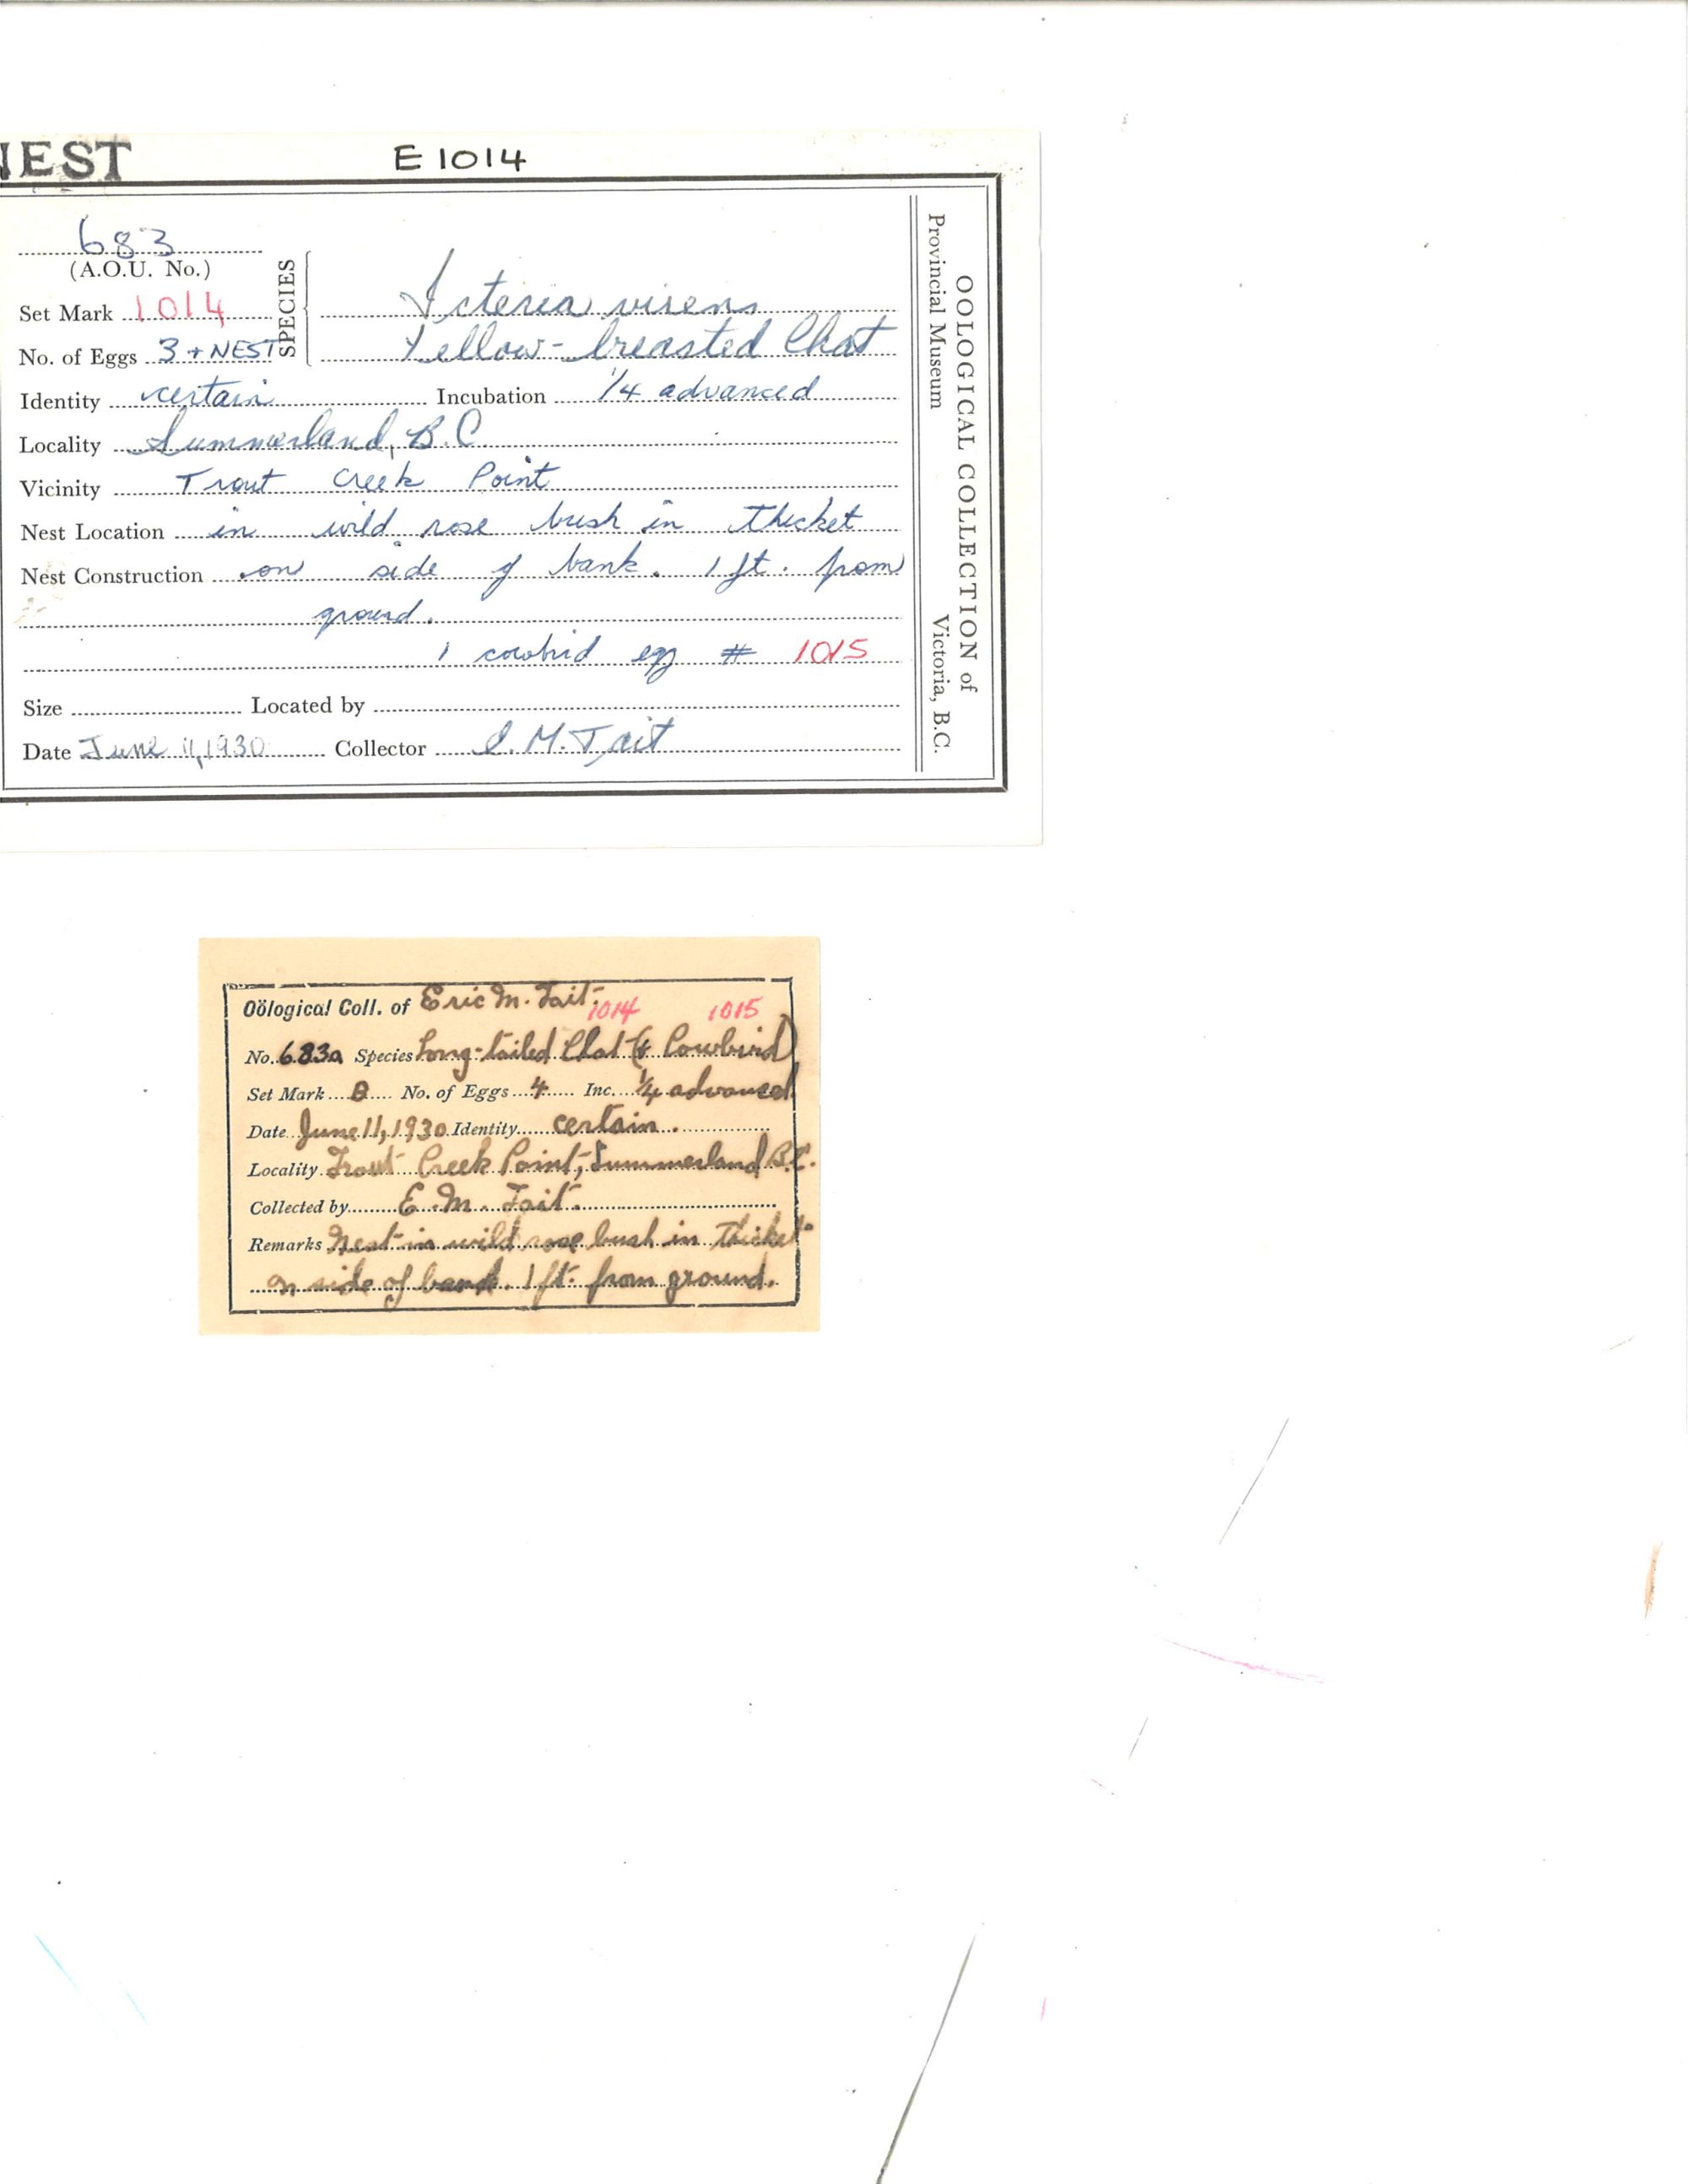 NEST E1014
683
(A.O.U. No.)
Set Mark 1014
No. of Eggs 3 + NEST
SPECIES
Icteria virens
Yellow-breasted Chat
Identity certain Incubation 1/4 advanced
Locality Summerland, B.C
Vicinity Trout Creek Point
Nest Location in wild rose bush in thicket
Nest Construction on side of bank. 1 ft. from
ground.
1 cowbrid egg # 1015
Size Located by
Date June 11, 1930 Collector E. M. Tait
OOLOGICAL COLLECTION of
Provincial Museum Victoria, B.C.
Oölogical Coll. of Eric M. Tait.
1014 1015
No. 683a Species Long-tailed Chat (& Cowbird)
Set Mark B No. of Eggs 4 Inc. 1/4 advanced
Date June 11, 1930 Identity certain.
Locality Trout Creek Point, Summerland B.C.
Collected by E. M. Tait.
Remarks Nest in wild rose bush in thicket
on side of bank. 1 ft. from ground.